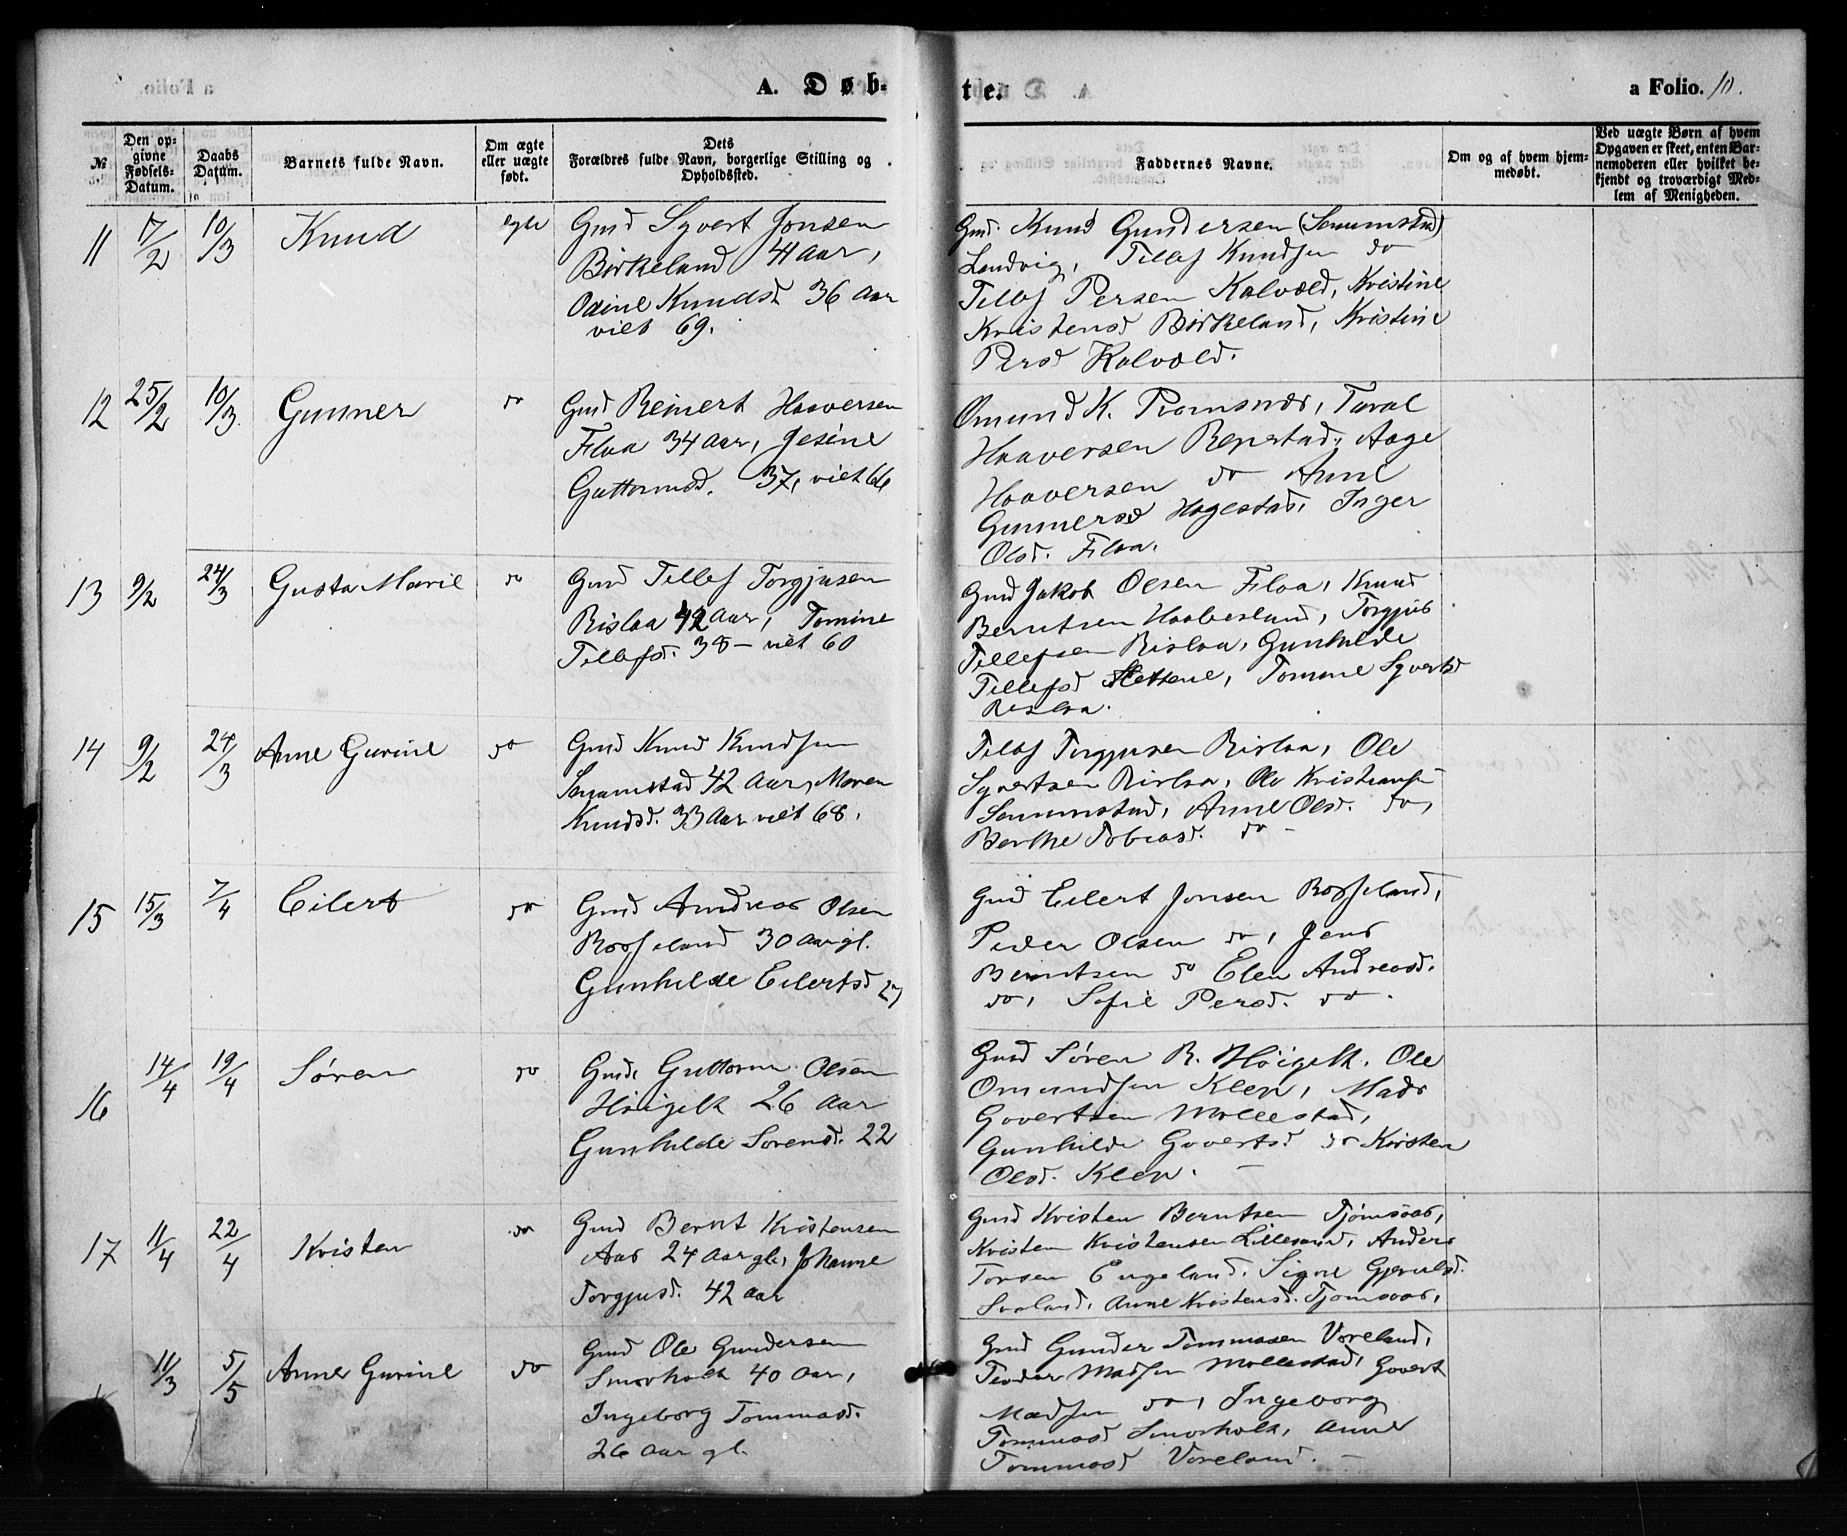 A. Døb-
te.
a Folio. 10.
№
Den op-
givne
Fødsels-
Datum.
Daabs
Datum.
Barnets fulde Navn.
Om ægte
eller uægte
født.
Dets
Forældres fulde Navn, borgerlige Stilling og
Opholdssted.
Faddernes Navne.
Om og af hvem hjem-
medøbt.
Ved uægte Børn af hvem
Opgaven er skeet, enten Bar-
nemoderen eller hvilket be-
kjendt og troværdigt Med-
lem af Menigheden.
11 17/2 10/3 Knud egte
Gmd Syvert Jonsen
Birkeland 41 Aar,
Odine Knudsd 36 Aar
viet 69.
Gmd. Knud Gundersen (Senumstad)
Landvig, Tellef Knudsen do
Tellef Persen Kalveld, Kristine
Kristensd Birkeland, Kristine
Persd Kalveld.
12 25/2 10/3. Gunner do
Gmd Reinert Haaversen
Flaa 34 Aar, Jesine
Guttormsd. 37, viet 66
Omund K. Tromsnes, Taral
Haaversen Repstad, Aage
Haaversen do Anne
Gunnersd Hagestad, Inger
Olsd. Flaa.
13 9/2 24/3 Gusta Marie do
Gmd Tellef Torgjusen
Rislaa 42 Aar, Tomine
Tellefsd. 38 – viet 60
Gmd Jakob Olsen Flaa, Knud
Berntsen Haabesland, Torgjus
Tellefsen Rislaa, Gunhilde
Tellefsd Slettene, Tomine Syvertsd
Rislaa.
14 9/2 24/3 Anne Gurine do
Gmd Knud Knudsen
Senumstad 42 Aar, Maren
Knudsd. 33 Aar viet 68.
Tellef Torgjusen Rislaa, Ole
Syvertsen Rislaa, Ole Kristiansen
Senumstad, Anne Olsd. do,
Berthe Tobiasd. do –
15 15/3 7/4 Eilert do
Gmd Andreas Olsen
Rosseland 30 Aar gl.
Gunhilde Eilertsd 27
Gmd Eilert Jonsen Rosseland,
Peder Olsen do, Jens
Berntsen do Elen Andreasd.
do, Sofie Persd. do.
16 14/4 19/4 Søren do
Gmd. Guttorm Olsen
Høigelt 26 Aar
Gunhilde Sorensd. 22
Gmd Søren R. Høigelt. Ole
Omundsen Klep, Mads
Govertsen Mollestad,
Gunhilde Govertsd do Kirsten
Olsd. Klep. –
17 11/4 22/4 Kristen do
Gmd Bernt Kristensen
Aas 24 Aar gl., Johanne
Torgjusd. 42 Aar
Gmd Kristen Berntsen Tjømsaas,
Kristen Kristensen Lillesand, Anders
Torsen Engeland. Signe Gjerulsd.
Svaland, Anne Kristensd. Tjomsaas,
11/3 5/5 Anne Gurine do
Gmd Ole Gundersen
Smorholt 40 Aar,
Ingeborg Tommasd.
26 Aar gl.
Gmd Gunder Tommasen Voreland,
Teodor Madsen Mollestad, Govert
Madsen do, Ingeborg
Tommasd Smorholt, Anne
Tommasd Voreland. –